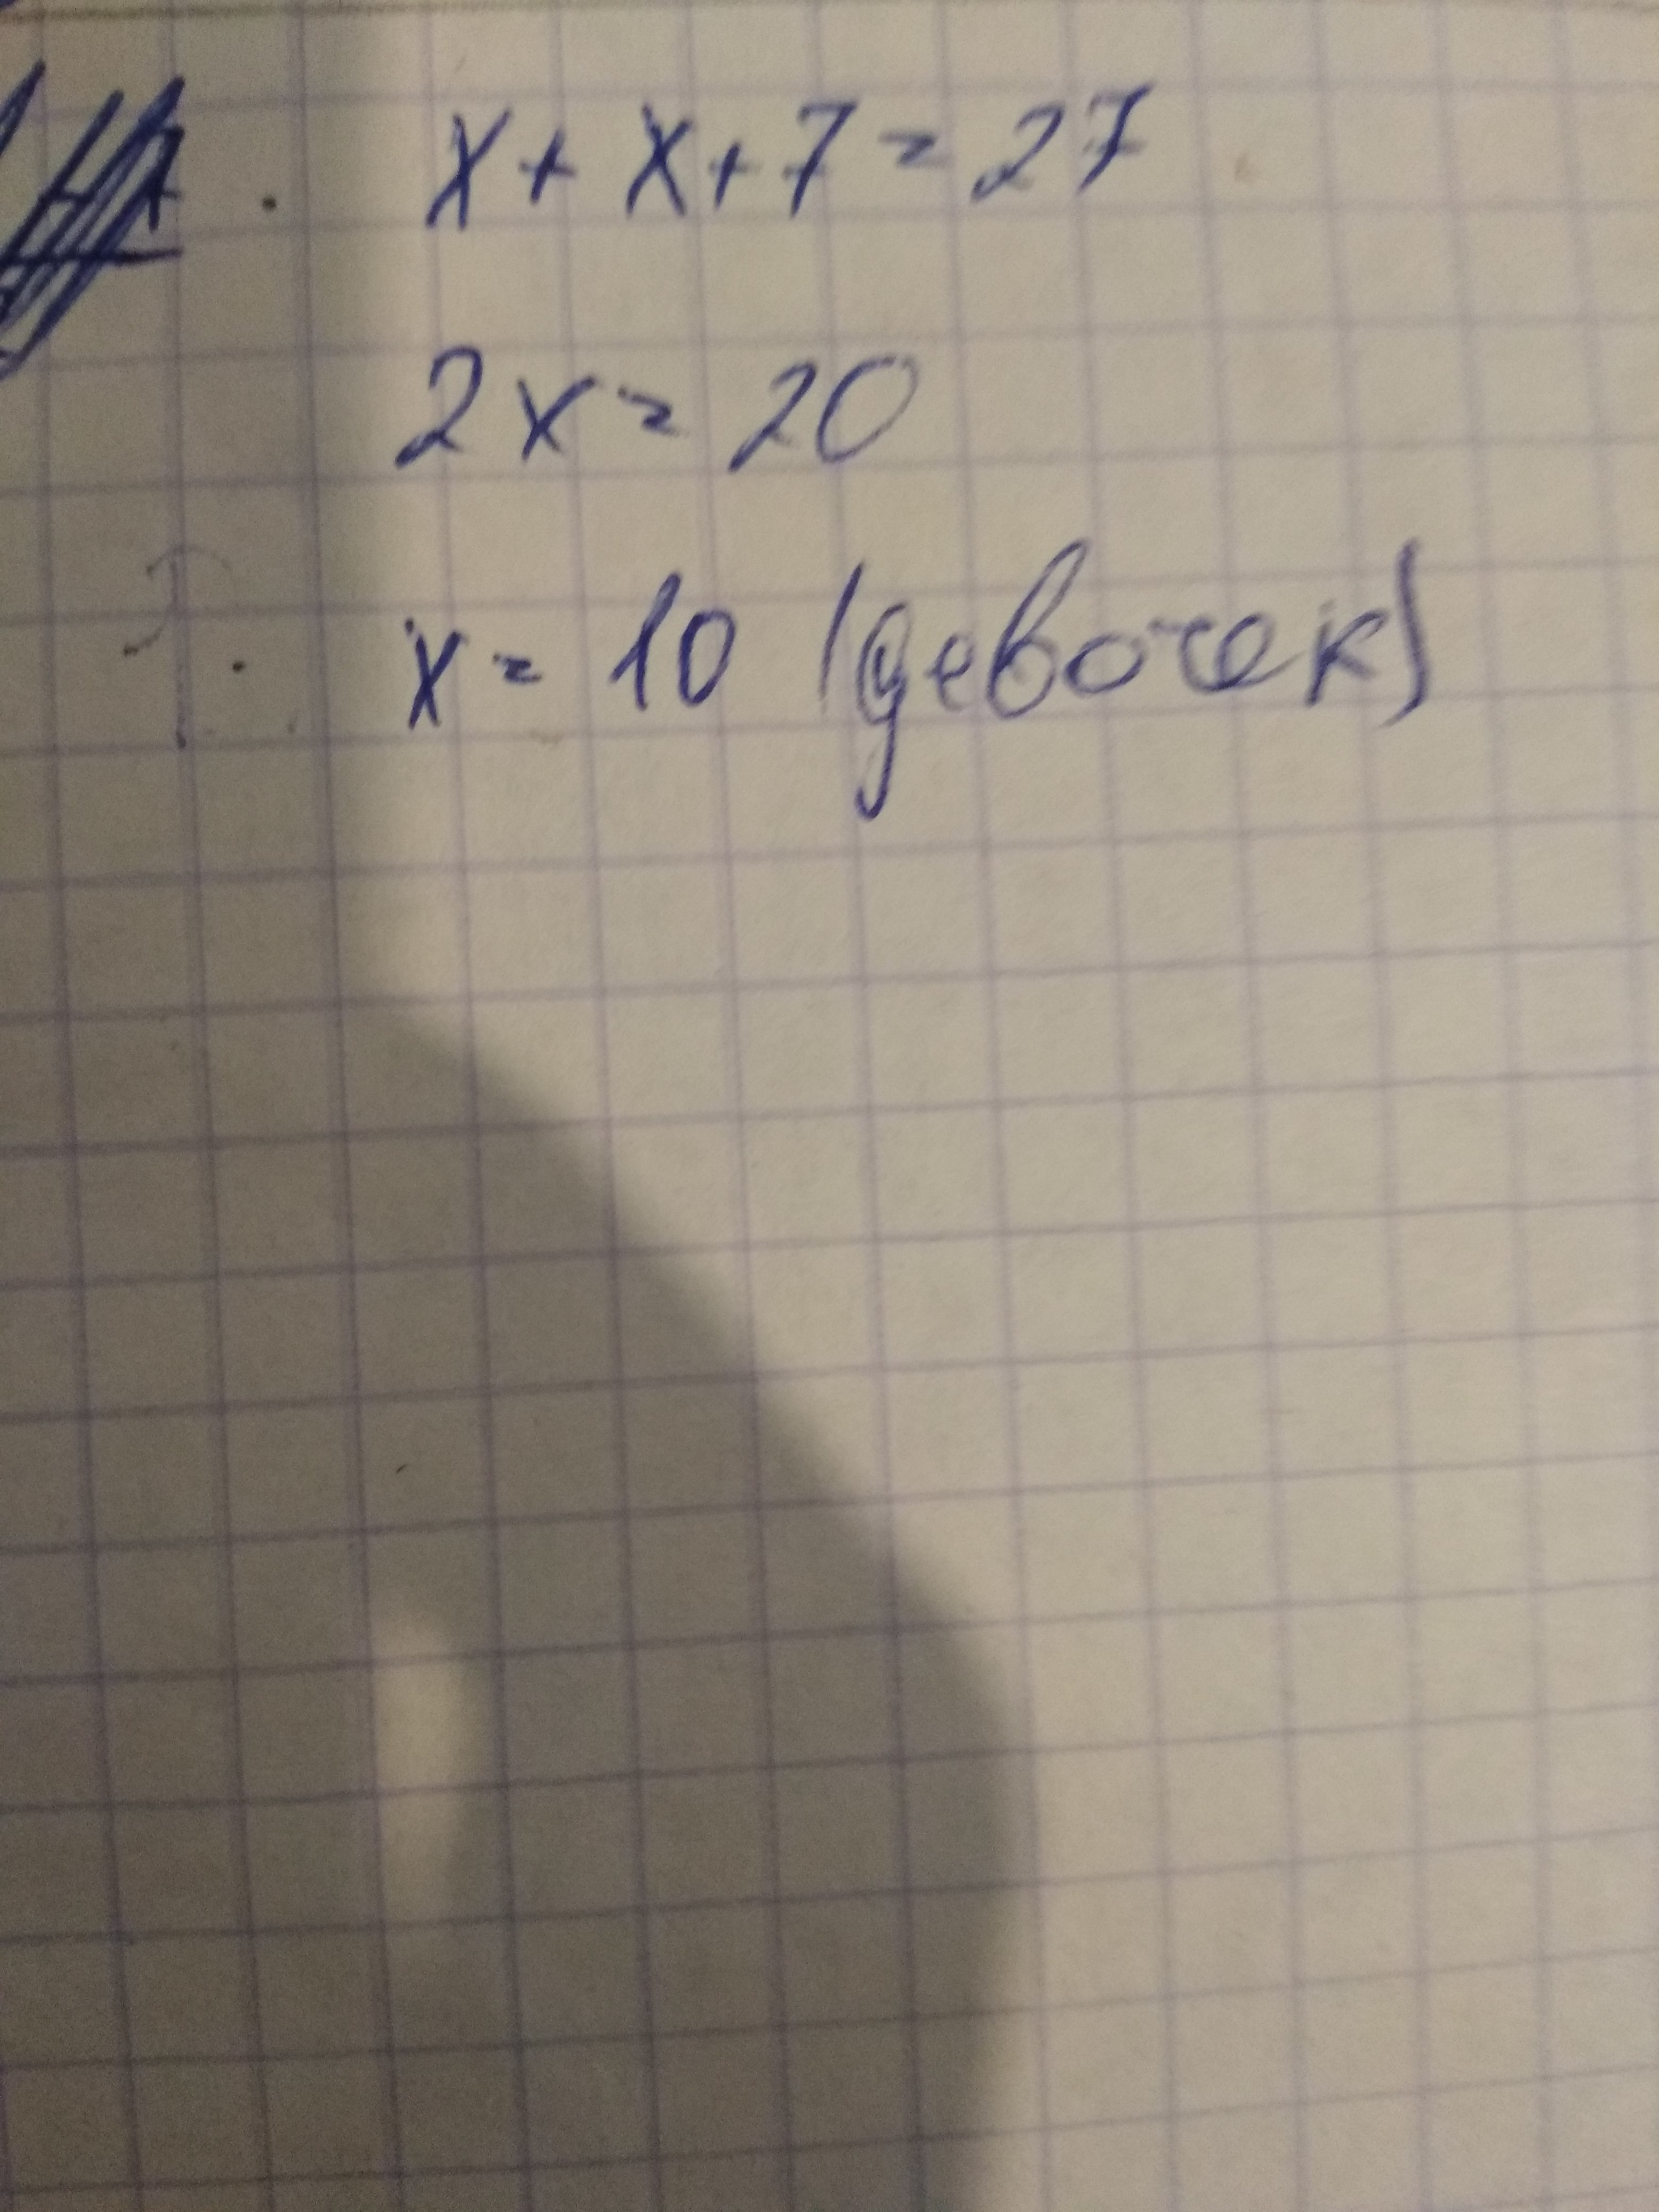 x + x + 7 = 27
2x = 20
x = 10 (девочек)